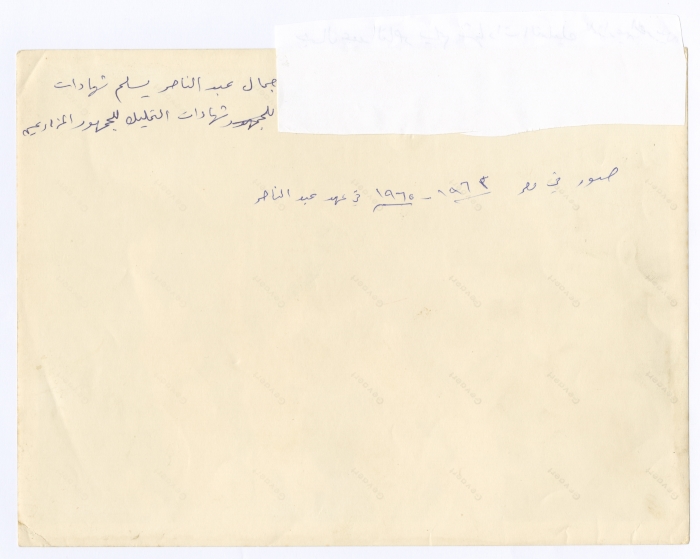 جمال عبد الناصر يسلم شهادات
للجمهور شهادات التمليك للجمهور المزارعين
صور في مصر ١٩٦٣ - ١٩٦٥ في عهد عبد الناصر